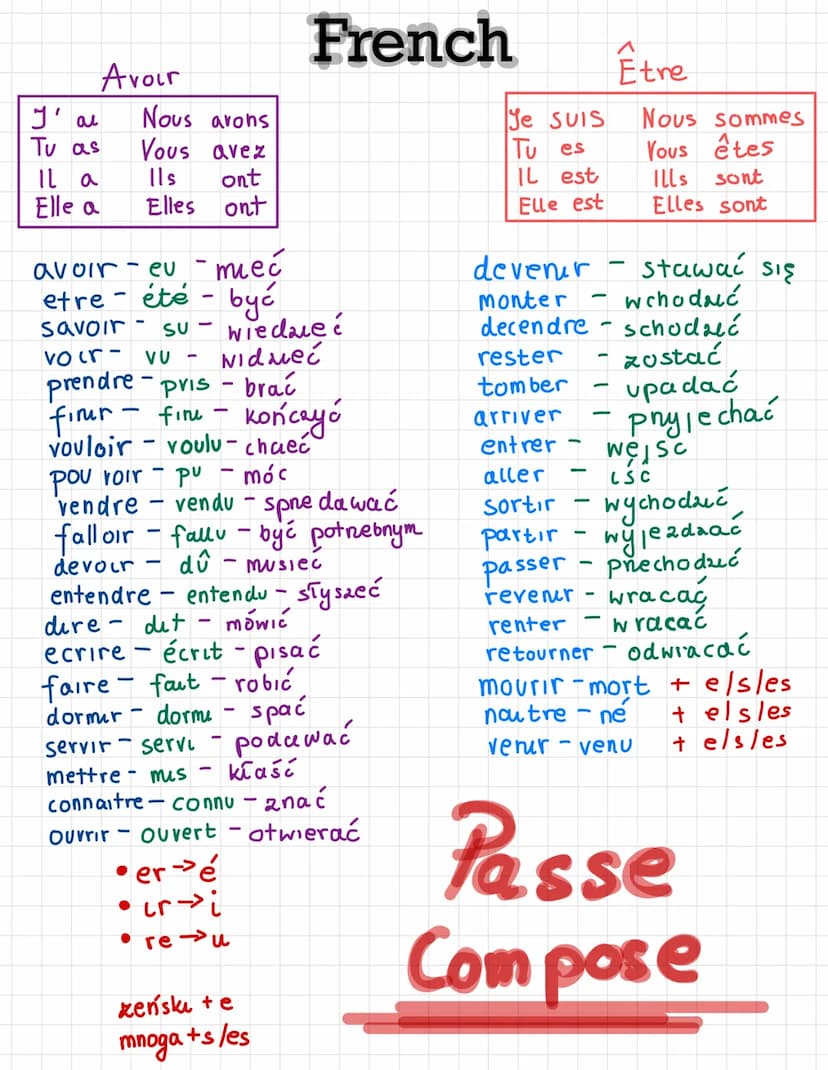 French
Avoir
J' ai Nous avons
Tu as Vous avez
Il a Ils ont
Elle a Elles ont
Être
Je suis Nous sommes
Tu es Vous êtes
Il est Ills sont
Elle est Elles sont
avoir - eu - mieć
etre - été - być
savoir - su - wiedzieć
voir - vu - widzieć
prendre - pris - brać
finir - fini - kończyć
vouloir - voulu - chcieć
pouvoir - pu - móc
vendre - vendu - sprzedawać
falloir - fallu - być potrzebnym
devoir - dû - musieć
entendre - entendu - słyszeć
dire - dit - mówić
ecrire - écrit - pisać
faire - fait - robić
dormir - dormi - spać
servir - servi - podawać
mettre - mis - kłaść
connaitre - connu - znać
ouvrir - ouvert - otwierać
• er → é
• ir → i
• re → u
żeński + e
mnoga + s/es
devenir - stawać się
monter - wchodzić
decendre - schodzić
rester - zostać
tomber - upadać
arriver - przyjechać
entrer - wejsc
aller - iść
sortir - wychodzić
partir - wyjezdzać
passer - przechodzić
revenir - wracać
renter - wracać
retourner - odwracać
mourir - mort + e/s/es
naitre - né + e/s/es
venir - venu + e/s/es
Passe
Compose